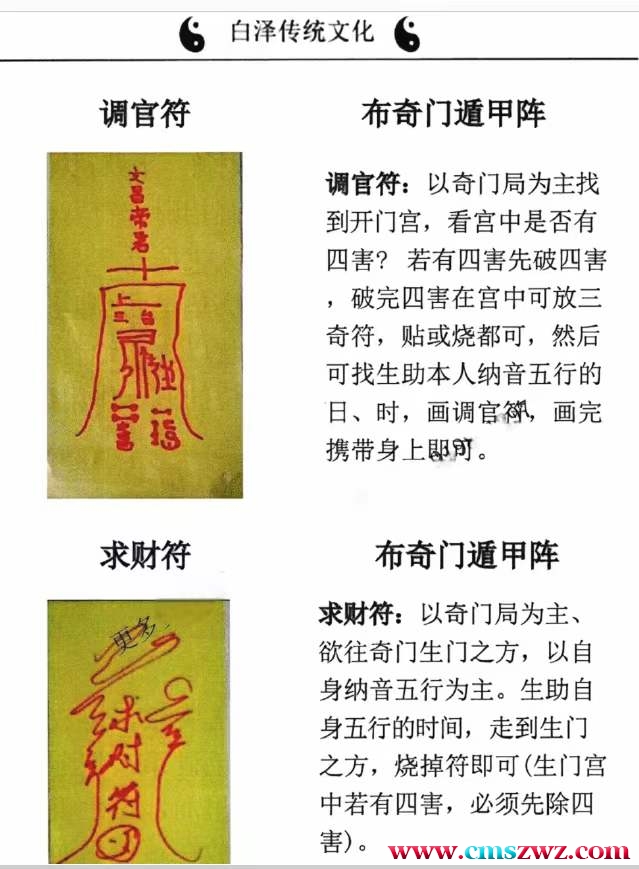 白泽传统文化
调官符
布奇门遁甲阵
文
昌
帝
君
上
三台
调官符：以奇门局为主找
到开门宫，看宫中是否有
四害？ 若有四害先破四害
，破完四害在宫中可放三
奇符，贴或烧都可，然后
可找生助本人纳音五行的
日、时，画调官符，画完
携带身上即可。
求财符
布奇门遁甲阵
更多
求
财
符
求财符：以奇门局为主、
欲往奇门生门之方，以自
身纳音五行为主。生助自
身五行的时间，走到生门
之方，烧掉符即可(生门宫
中若有四害，必须先除四
害)。
www.cmszwz.com